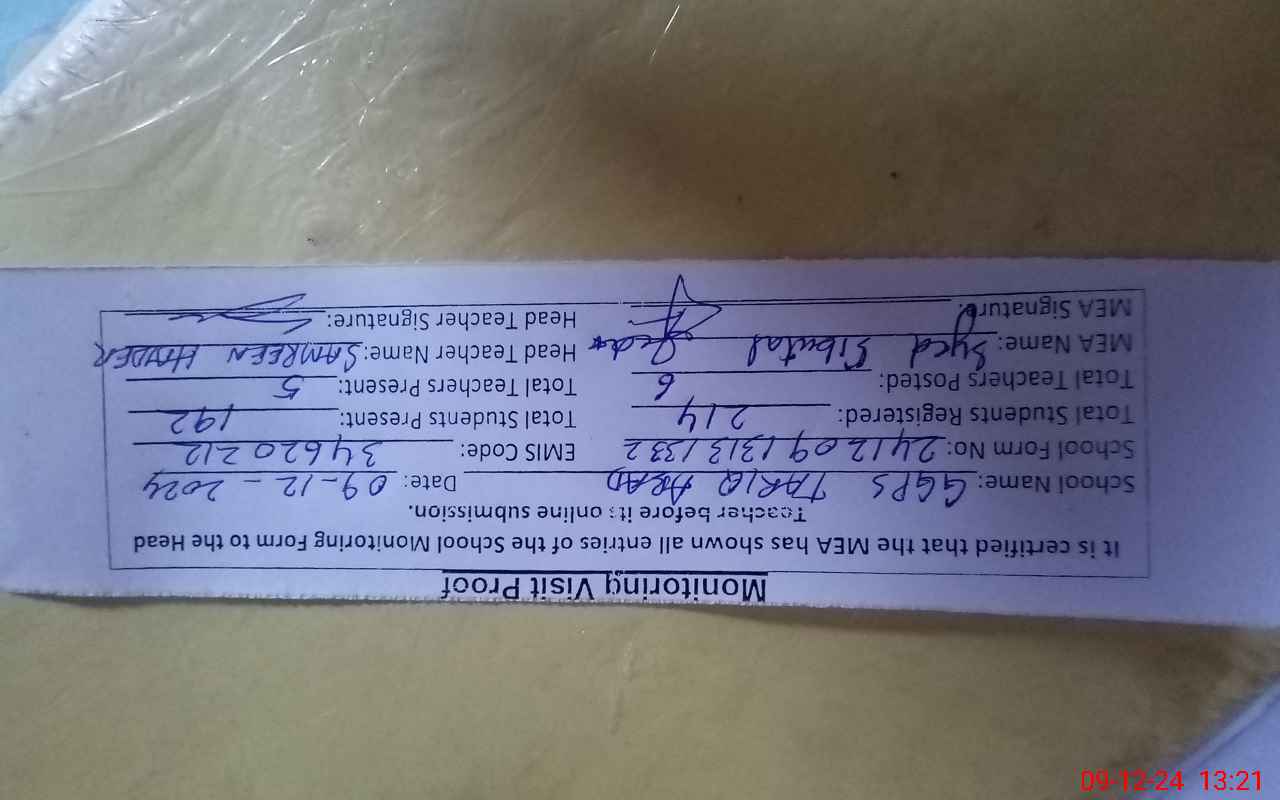 Monitoring Visit Proof
It is certified that the MEA has shown all entries of the School Monitoring Form to the Head
Teacher before its online submission.
School Name: GGPS TARIQ ABAD Date: 09-12-2024
School Form No: 24120913131332 EMIS Code: 34620212
Total Students Registered: 214 Total Students Present: 192
Total Teachers Posted: 6 Total Teachers Present: 5
MEA Name: Syed Sibutal Head Teacher Name: SAMREEN HAYDER
MEA Signature: Head Teacher Signature:
09-12-24 13:21